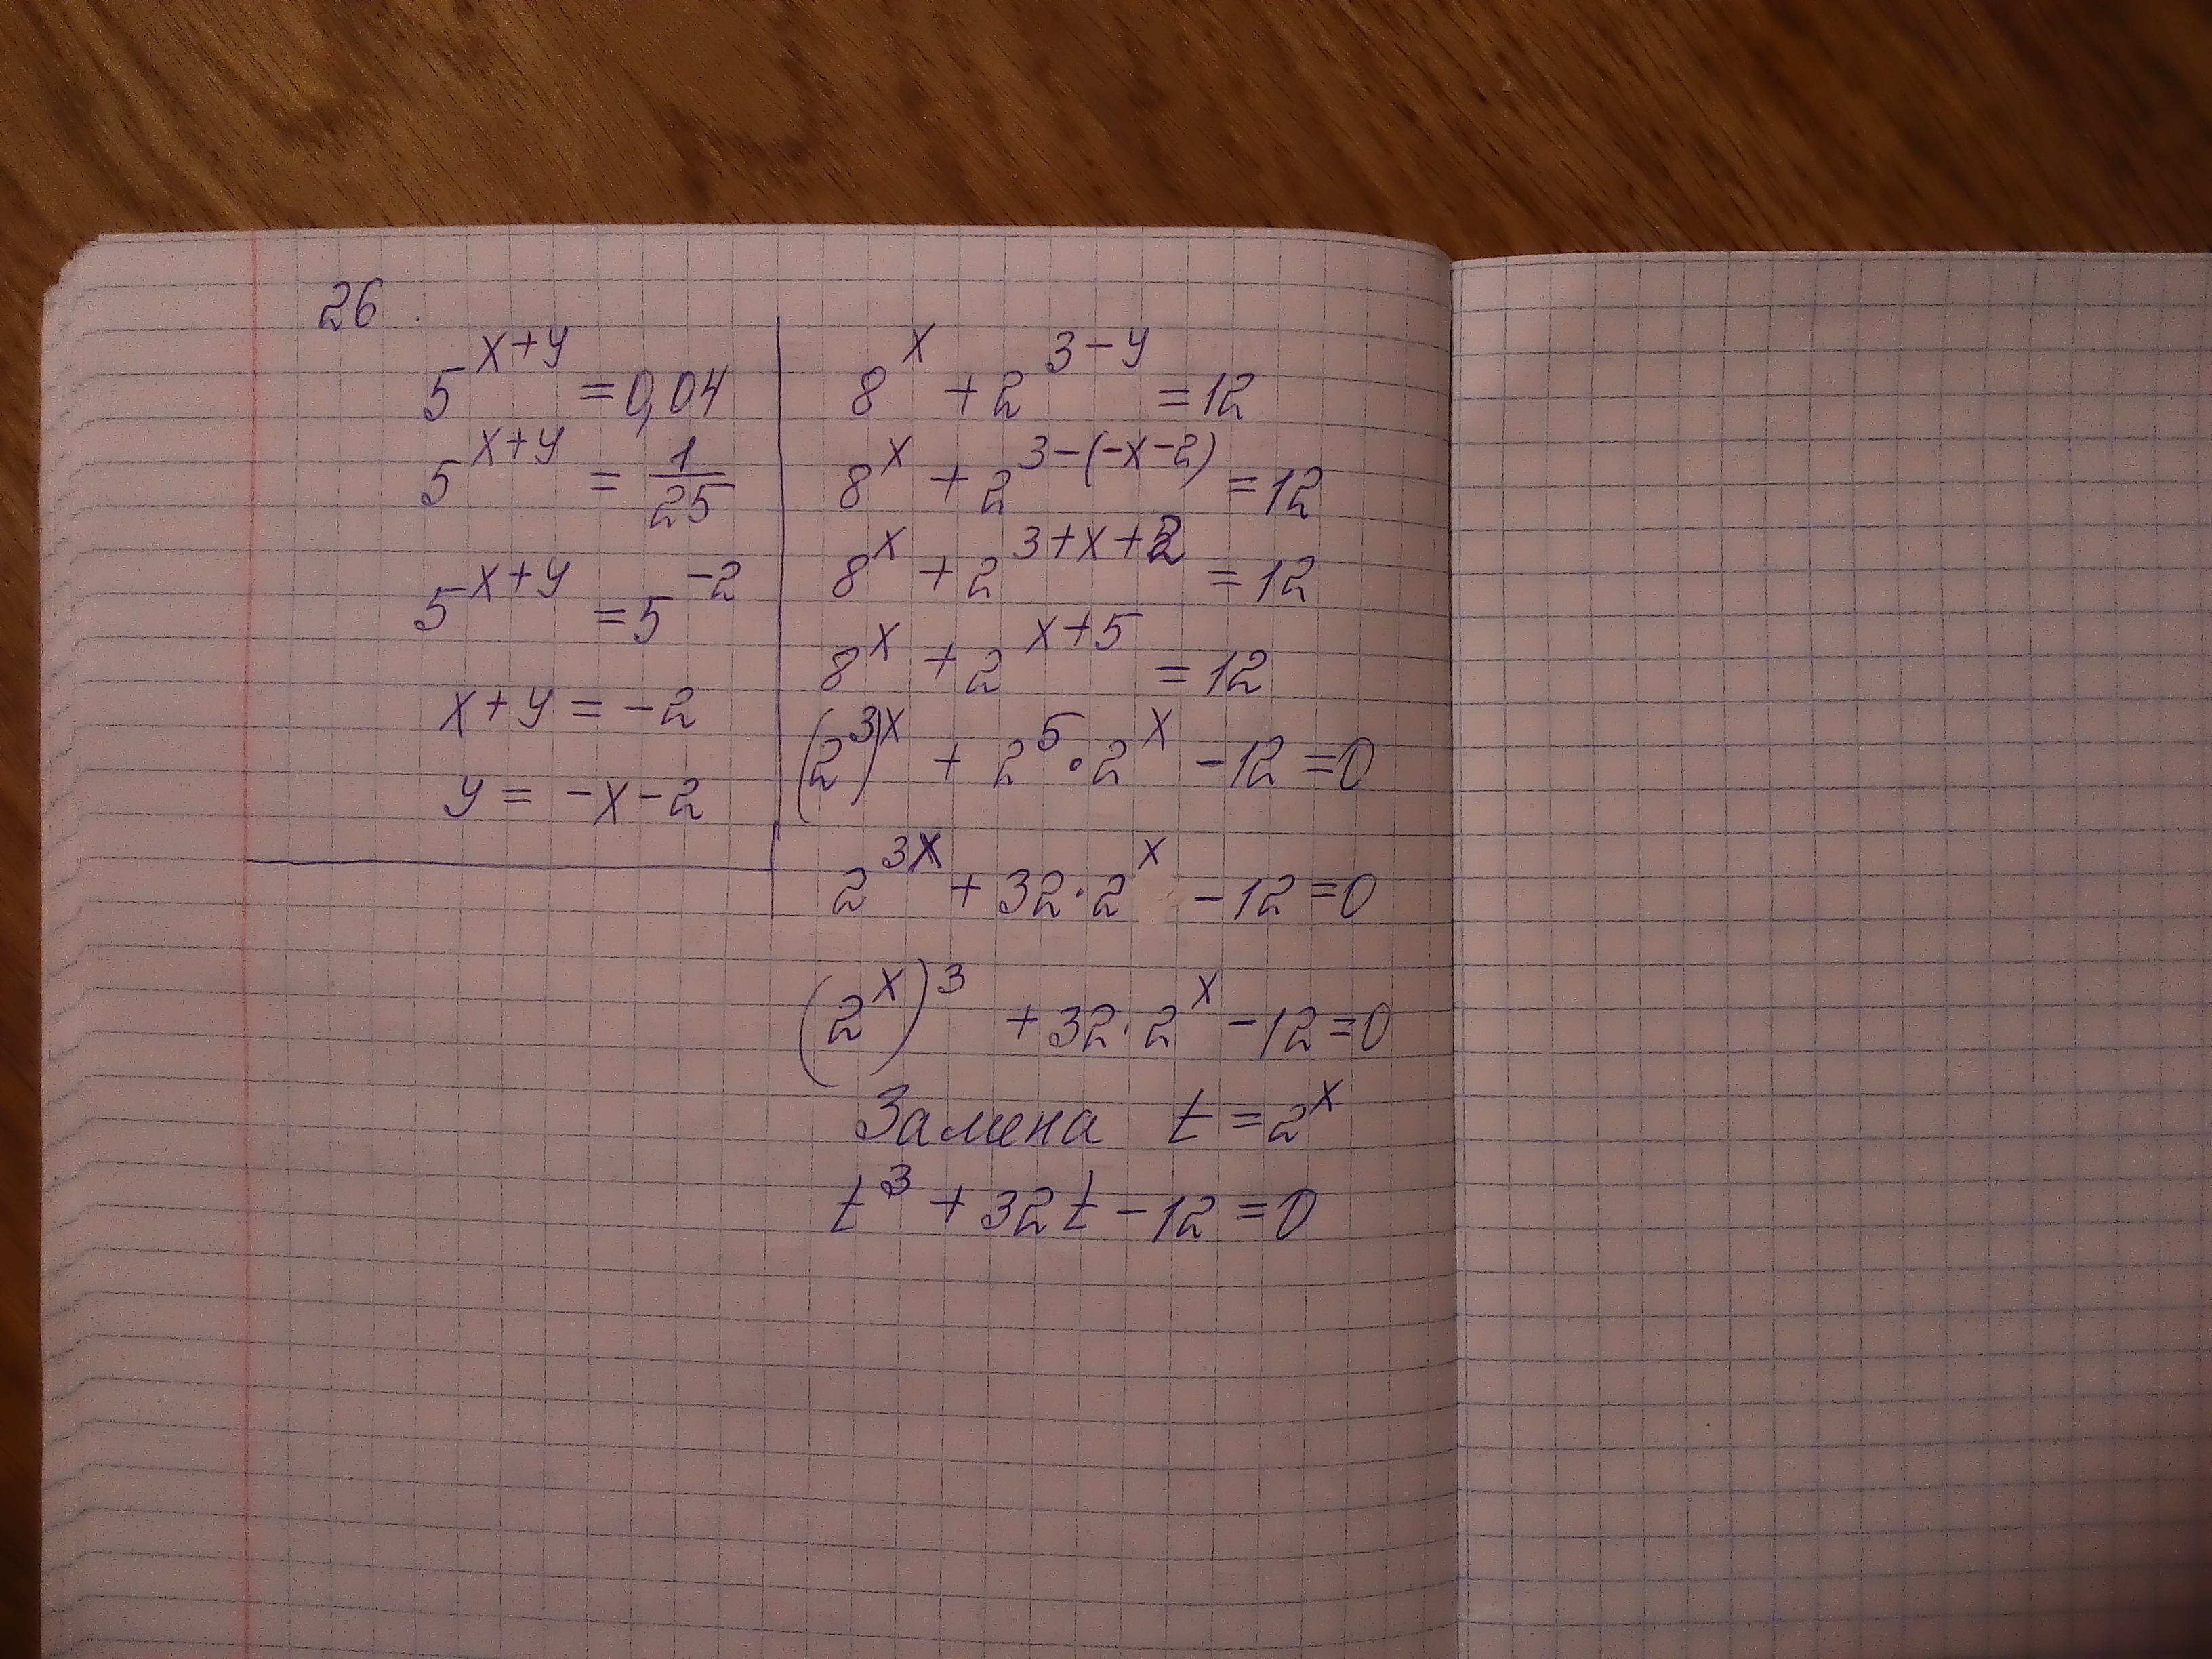 26.
5^{x+y} = 0,04
5^{x+y} = \frac{1}{25}
5^{x+y} = 5^{-2}
x+y = -2
y = -x-2
8^x + 2^{3-y} = 12
8^x + 2^{3-(-x-2)} = 12
8^x + 2^{3+x+2} = 12
8^x + 2^{x+5} = 12
(2^3)^x + 2^5 · 2^x - 12 = 0
2^{3x} + 32 · 2^x - 12 = 0
(2^x)^3 + 32 · 2^x - 12 = 0
Замена t = 2^x
t^3 + 32t - 12 = 0